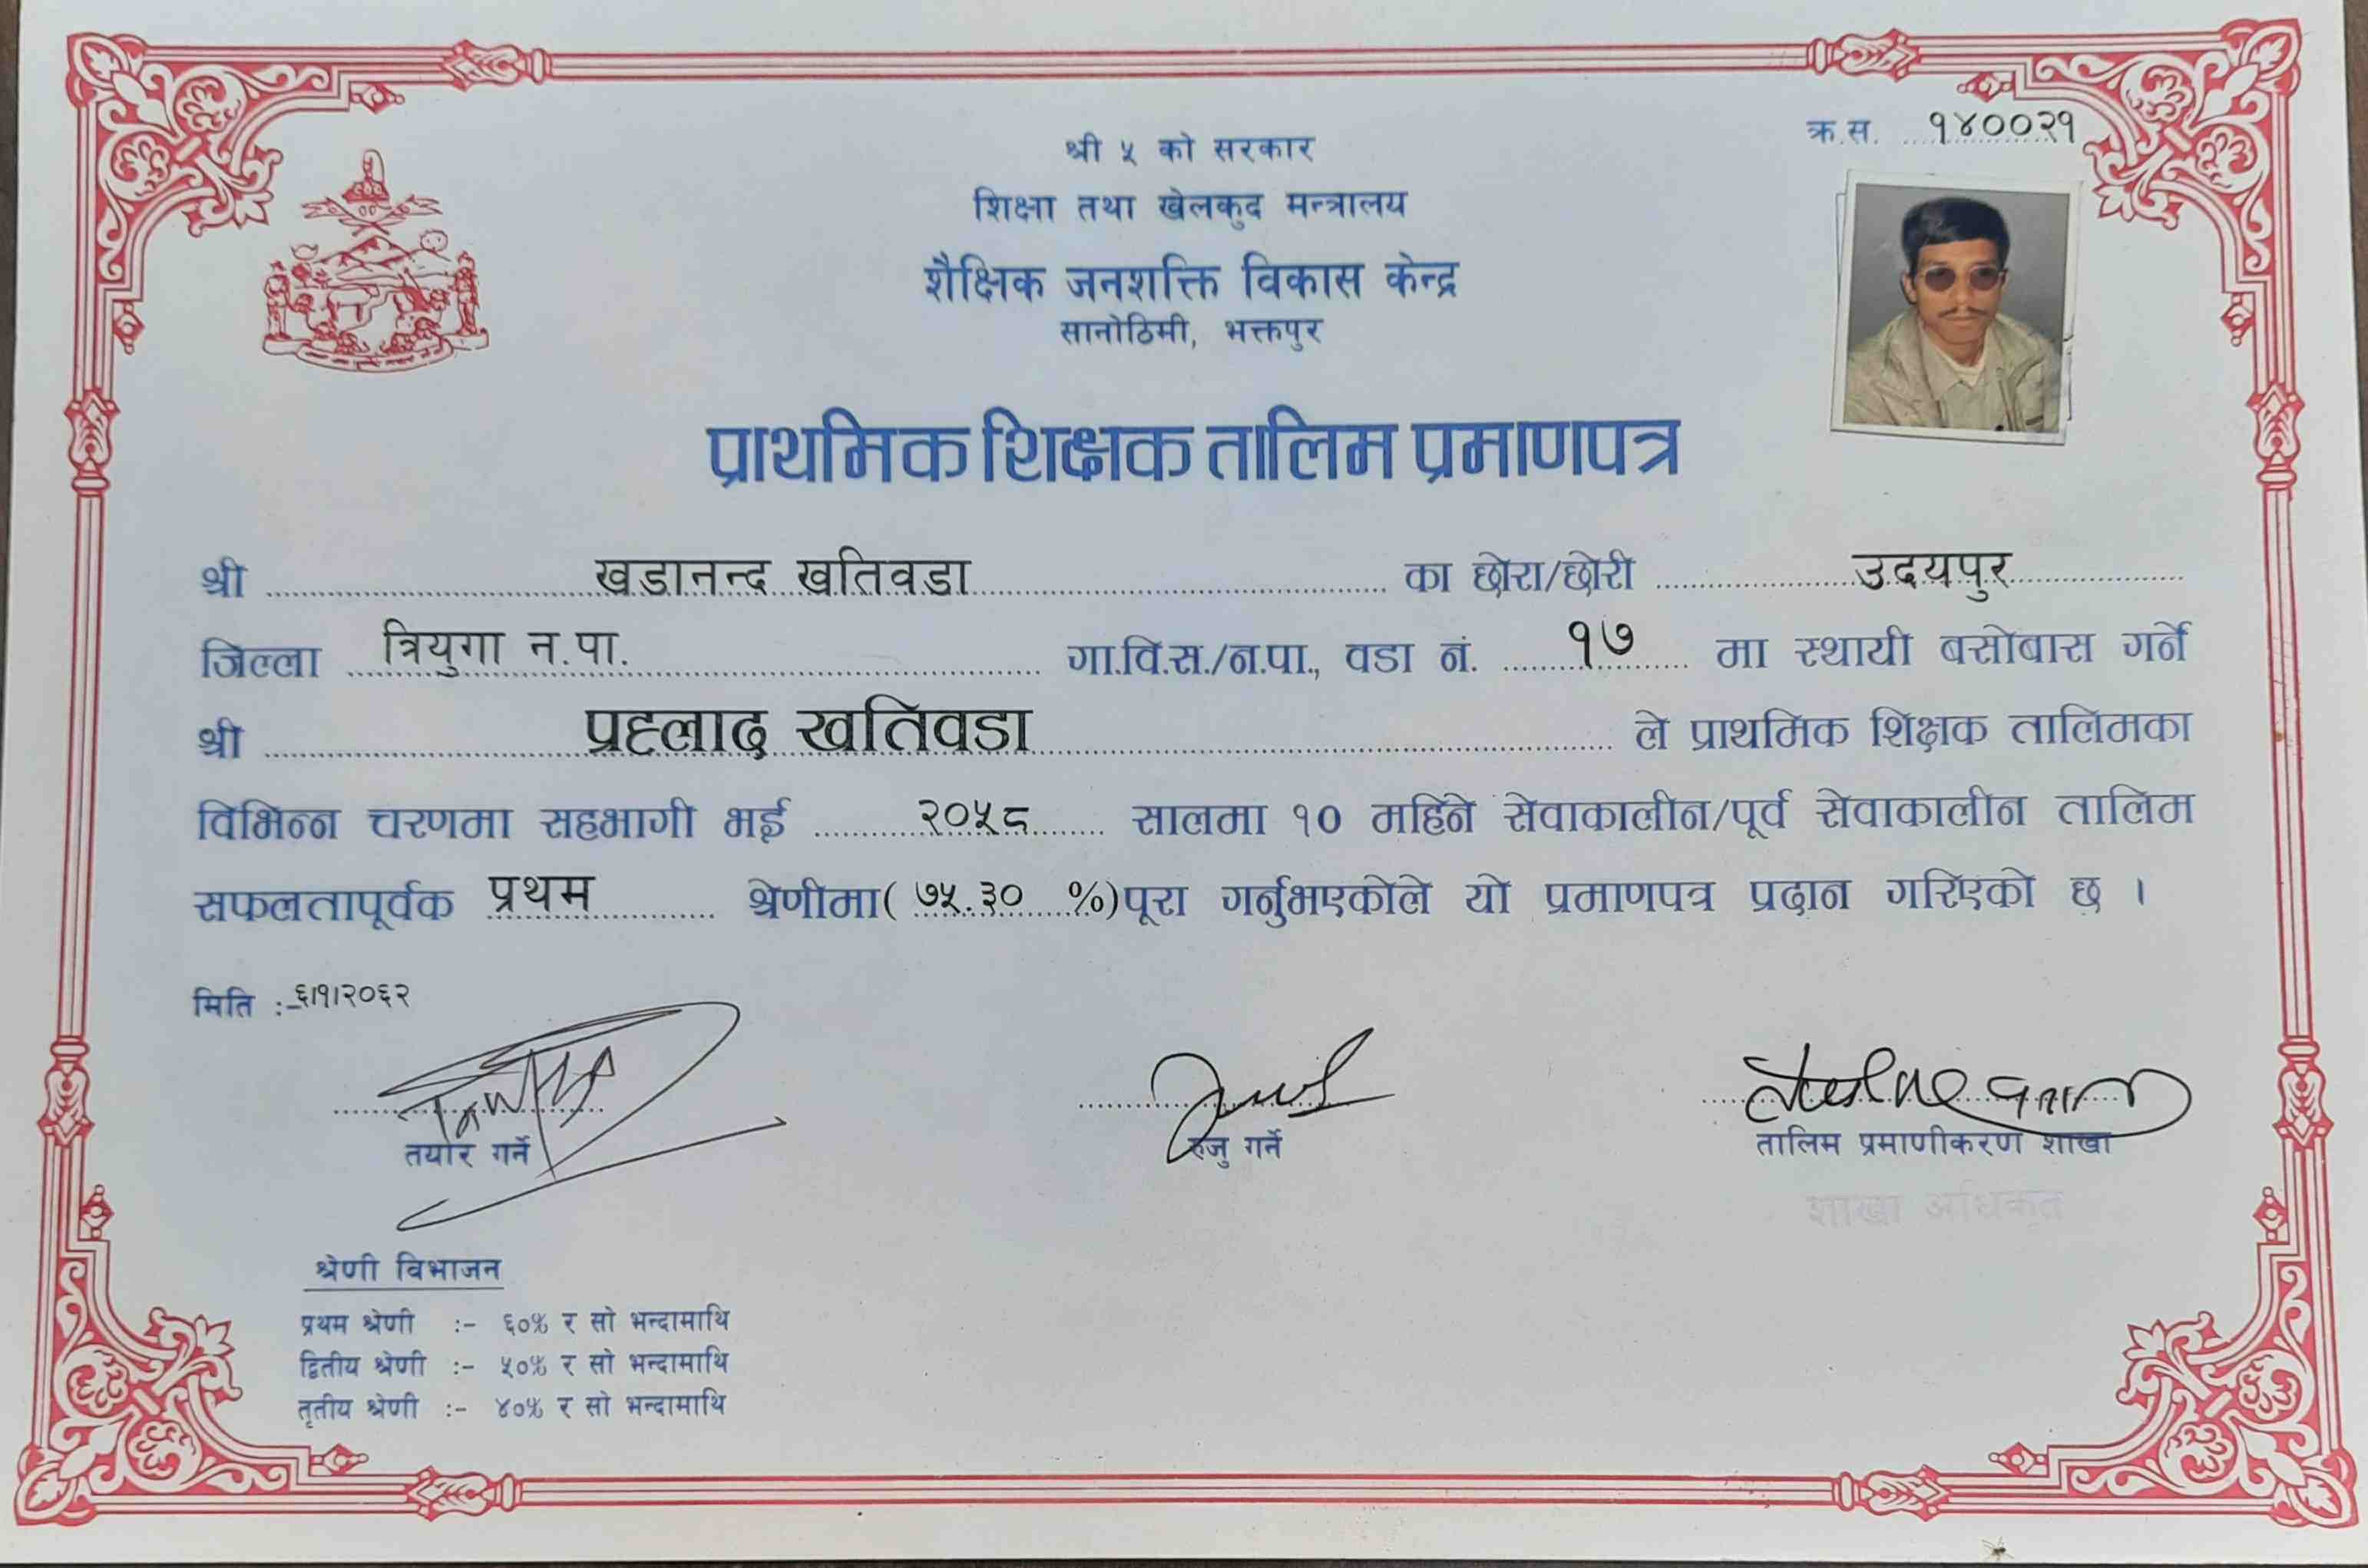 क्र.स. १४००२१
श्री ५ को सरकार
शिक्षा तथा खेलकुद मन्त्रालय
शैक्षिक जनशक्ति विकास केन्द्र
सानोठिमी, भक्तपुर
प्राथमिक शिक्षक तालिम प्रमाणपत्र
श्री खडानन्द खतिवडा का छोरा/छोरी उदयपुर
जिल्ला त्रियुगा न.पा. गा.वि.स./न.पा., वडा नं. १७ मा स्थायी बसोबास गर्ने
श्री प्रह्लाद खतिवडा ले प्राथमिक शिक्षक तालिमका
विभिन्न चरणमा सहभागी भई २०५८ सालमा १० महिने सेवाकालीन/पूर्व सेवाकालीन तालिम
सफलतापूर्वक प्रथम श्रेणीमा( ७५.३० %)पूरा गर्नुभएकोले यो प्रमाणपत्र प्रदान गरिएको छ ।
मिति :- ६।१।२०६२
तयार गर्ने रुजु गर्ने तालिम प्रमाणीकरण शाखा
शाखा अधिकृत
श्रेणी विभाजन
प्रथम श्रेणी :- ६०% र सो भन्दामाथि
द्वितीय श्रेणी :- ५०% र सो भन्दामाथि
तृतीय श्रेणी :- ४०% र सो भन्दामाथि